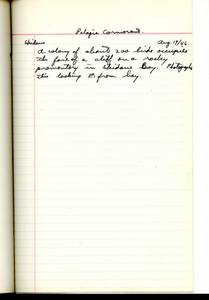 Pelagic Cormorant.
Aug 17/46.
A colony of about 200 birds occupies
the face of a cliff on a rocky
promontory in Skidans Bay. Photographs
this looking from bay.